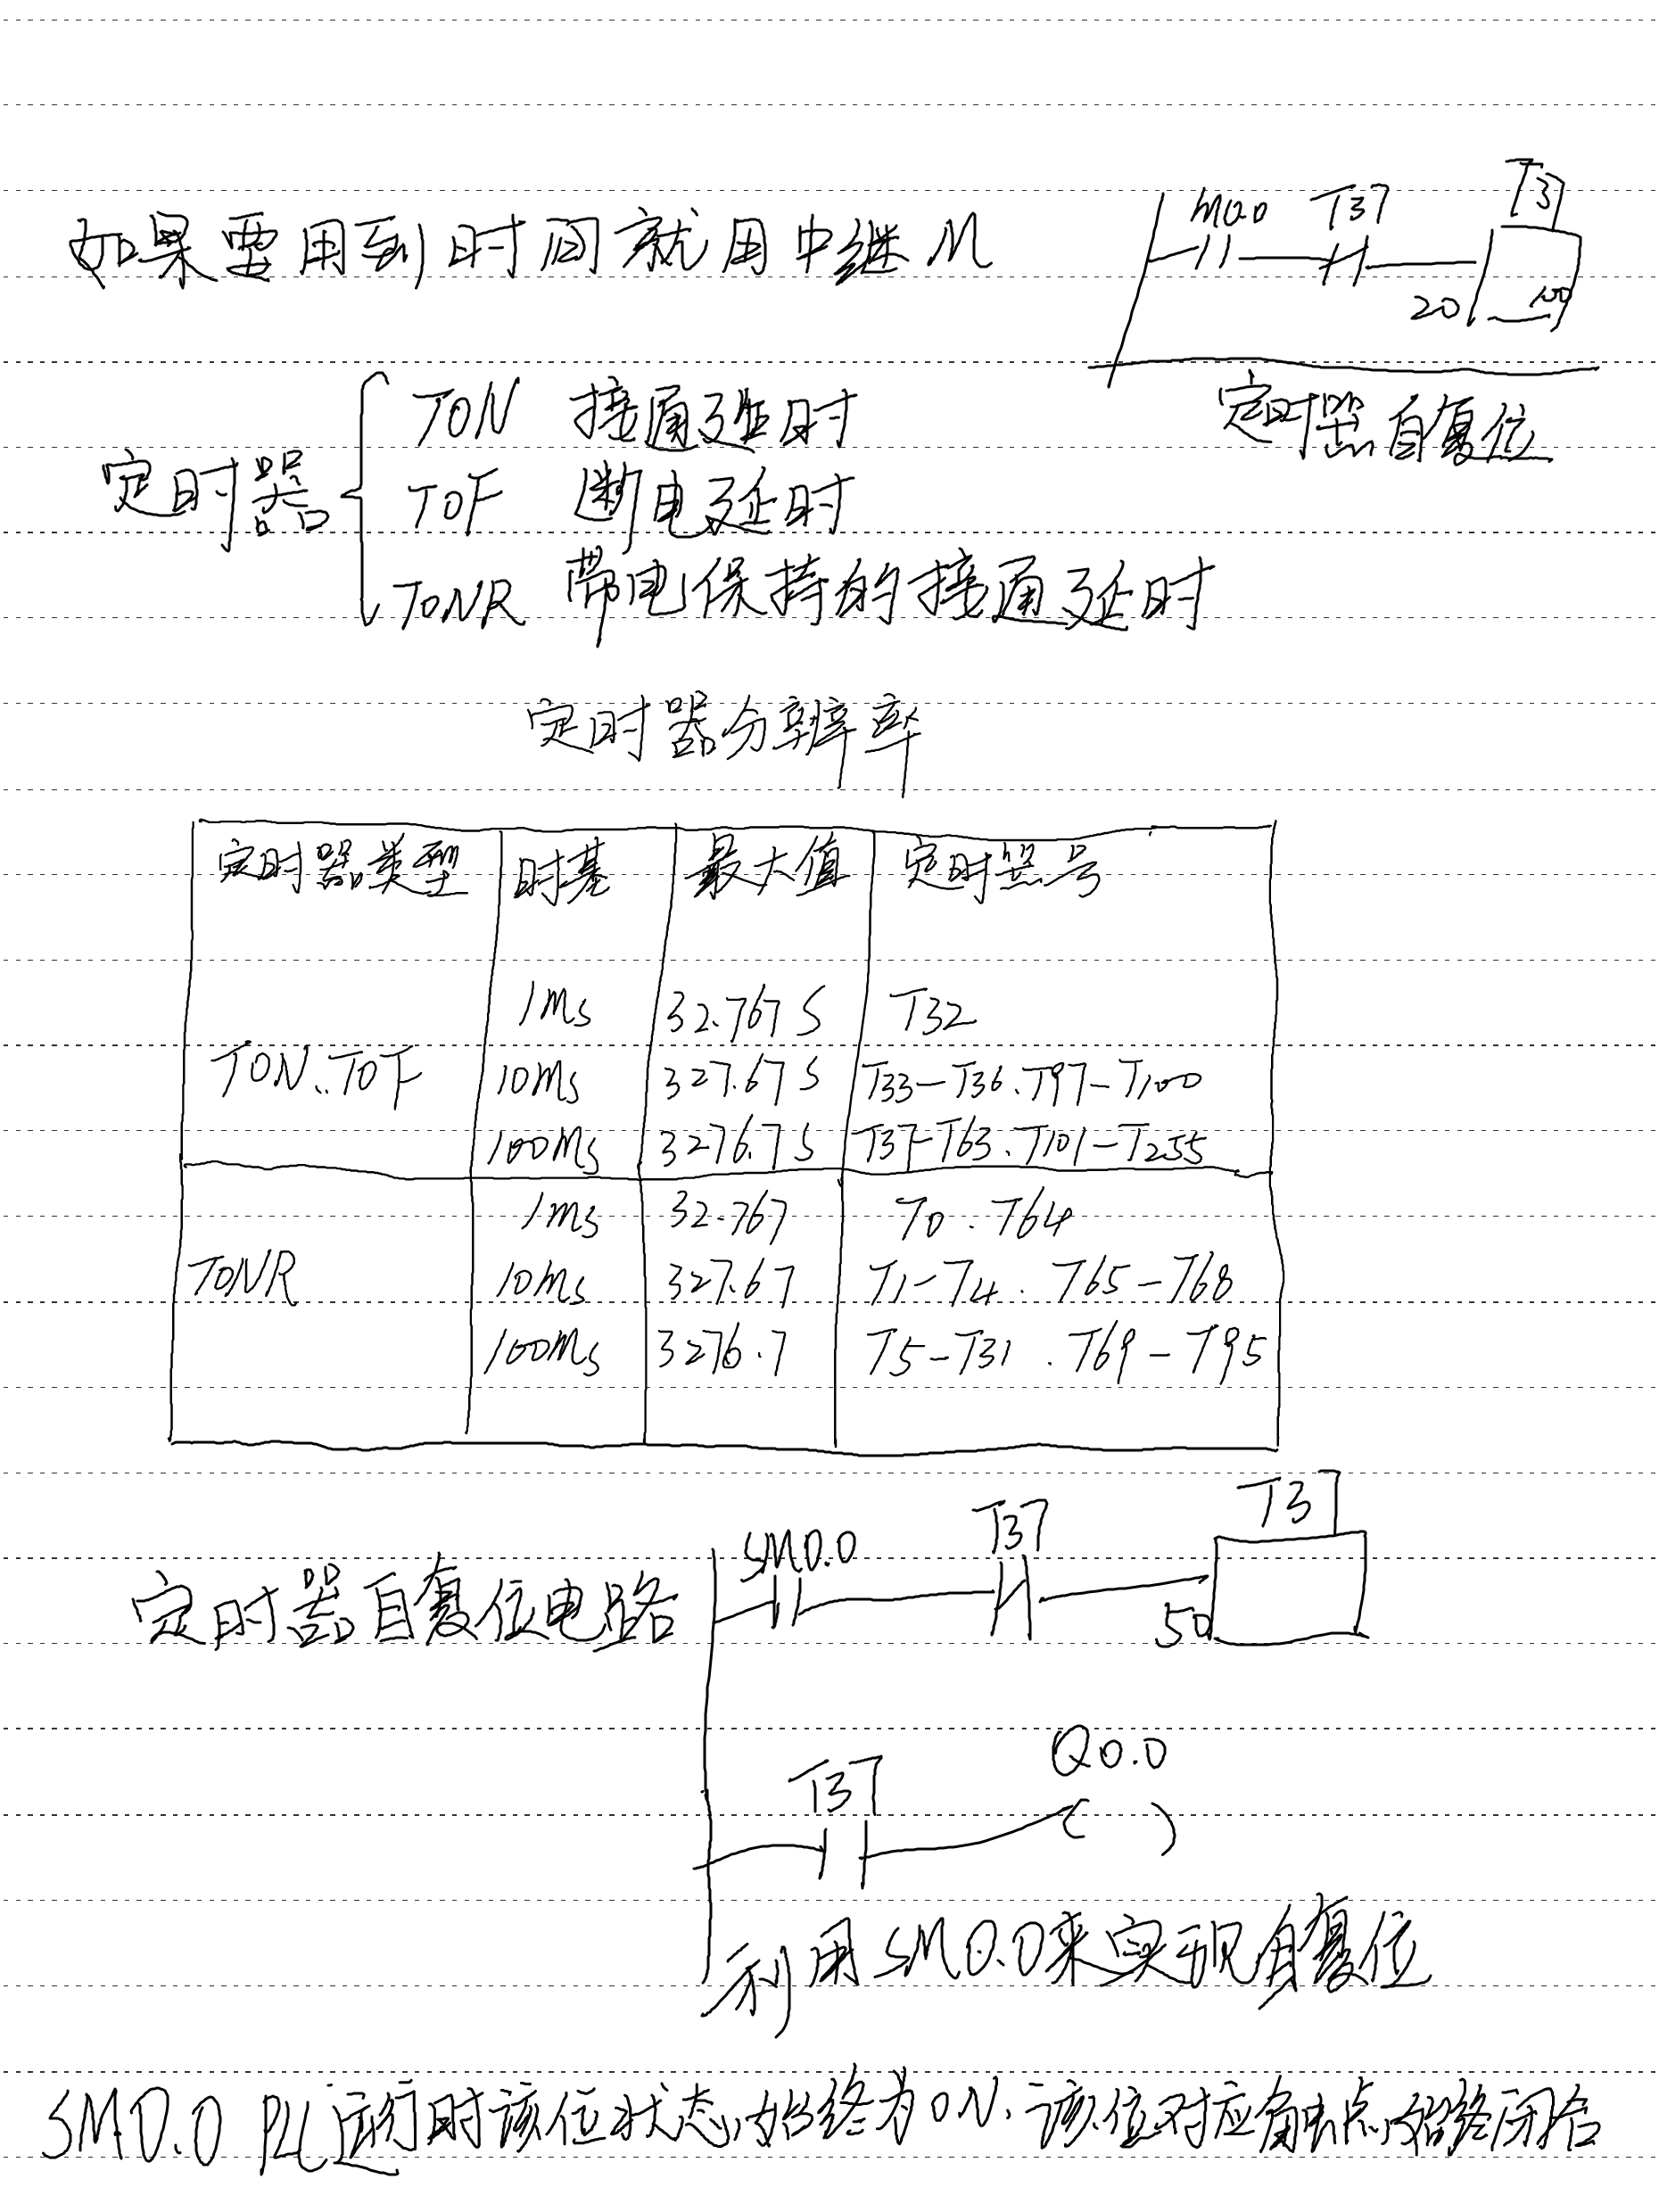 如果要用到时间就用中继M
M0.0 T37 T37
20 100
定时器自复位
定时器
TON 接通延时
TOF 断电延时
TONR 带电保持的接通延时
定时器分辨率
定时器类型 时基 最大值 定时器号
1ms 32.767S T32
TON.TOF 10ms 327.67S T33-T36.T97-T100
100ms 3276.7S T37-T63.T101-T255
1ms 32.767 T0.T64
TONR 10ms 327.67 T1-T4.T65-T68
100ms 3276.7 T5-T31.T69-T95
定时器自复位电路
SM0.0 T37 T37
50
T37 Q0.0
利用SM0.0来实现自复位
SM0.0 PLC运行时该位状态始终为ON.该位对应触点始终闭合